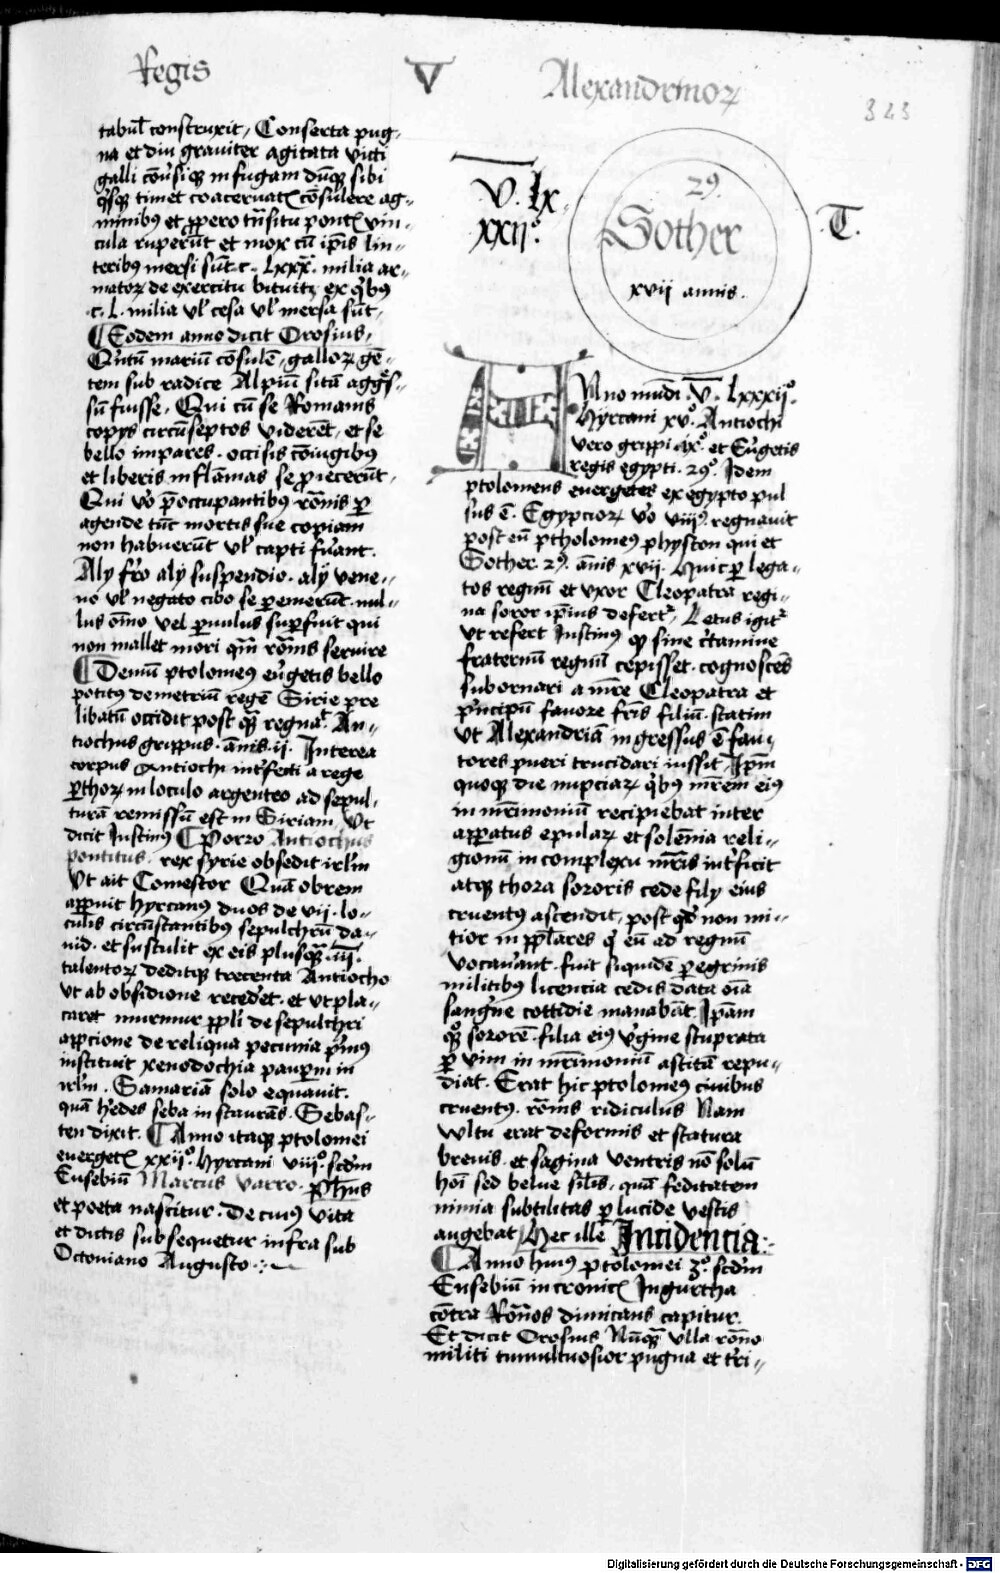 Regis
V
Alexandrinoꝝ
323
tabul̄ construxit, Conserta pug-
na et diu graviter agitata victi
galli cōūsiqꝫ in fugam dūqꝫ sibi
qͥsqꝫ timet coacervatꝭ cōsulere ag-
minibꝰ et ꝓpero tn̄situ pontꝭ vin-
cula ruperūt et mox cū ip̄is lin-
teribus mersi sūt .c. lxxx. milia ar-
matoꝝ de exercitu bituitꝭ ex qͥbꝰ
.c.l. milia vl̓ cesa vl̓ mersa sūt,
¶ Eodem anno dicit Orosius,
Qͥntū mariū cōsulē, galloꝝ gē-
tem sub radice Alpiū sitā aggͤs-
sū fuisse, Qui cū se Romanis
copys circūseptos viderēt, et se
bello impares . occisis cōiugibus
et liberis in flāmas se ꝓiecerūt,
Qui v̓o p̄occupantibꝰ rōmis ꝑ
agende tūc mortis sue copiam
non habuerūt vl̓ capti fu̓ant.
Aly fr̓o alÿ suspendio . alÿ vene-
no vl̓ negato cibo se ꝑemerūt . nul-
lus om̄o vel ꝑvulus suꝑfuit qui
non mallet mori qm̄ rōmis servire
¶ Demū ptolomeꝰ eu̓getis bello
potitꝰ demetriū regē Sirie pre
libatū occidit post qꝫ regnaᵗ An-
tiochus grippus . ānis . ii. Interea
corpus Antiochi int̓fecti a rege
ꝑthoꝝ in loculo argenteo ad sepul-
turā remissū est in Siriam, Ut
dicit Justinꝰ ¶ Porro Antiochus
pontitus . rex syrie obsedit irl̄m
Ut ait Comestor Quā obrem
apꝑuit hyrcanꝰ duos de vii. lo-
culis circūstantibus sepulchrū da-
uid . et sustulit ex eis plusqꝫ .iii.
talentoꝝ deditqꝫ trecenta Antiocho
Ut ab obsidione recedet . et ut pla-
caret murmur ppl̓i de sepulchri
apꝑcione de reliqua pecunia pͥmꝰ
instituit xenodochia pauꝑm in
irl̄m . Samariā solo equauit .
quā hedes seba in staurās . Sebas-
ten dixit. ¶ Anno itaqꝫ ptolomei
euergetꝭ xxii° . hyrcani viii° . scd̄m
Eusebiū Marcus varro . ph̄us
et poeta nascitur . De cuiꝰ vita
et dictis subsequetur infra sub
Octoviano Augusto .:
V. lx
xxii°.
29.
Sother
xvii annis.
.T.
Anno mūdi . V. lxxxii°.
hyrcani xv°. Antiochi
vero grippi . ix°. et Eu̓getis
regis egypti . 29°. Idem
ptolomeus euergetes ex egypto pul
sus ē. Egypcioꝝ v̓o viiiꝰ regnauit
post eū ptholomeꝰ physcon qui et
Sother . 29. ānis xvii. Huic ꝑ lega-
tos regnū et uxor Cleopatra regi-
na soror ip̄ius defertᷣ, Letus igitᷣ
Ut refert Justinꝰ qꝫ sine c̓tamine
fraternū regnū cepisset . cognoscēs
subornari a mr̄e Cleopatra et
pͥncipū fauore fr̄is filiū . statim
Ut Alexandriā ingressus ē fau-
tores pueri trucidari iussit, Ip̄m
quoqꝫ die nupciaꝝ qͥbꝰ mr̄em eiꝰ
in mr̄imoniū recipiebat inter
apꝑatus epulaꝝ et solēnia reli-
gionū in complexu mr̄is int̓ficit
atqꝫ thora sororis cede fily eius
cruentꝰ ascendit, post qd̓ non mi-
tior in ppl̓ares qͥ eū ad regnū
vocau̓ant . fuit siquidē ꝑegrinis
militibus licencia cedis data oīa
sangͥne cottidie manabāt . Ip̄am
qꝫ sororē . filia eiꝰ v̓gine stuprata
ꝑ vim in mr̄imoniū ascitā repu-
diat. Erat hic ptolomeꝰ ciuibus
cruentꝰ . rōmis ridiculus Nam
vultu erat deformis et statura
brevis . et sagina ventris nō solū
hoī sed belue sil̓is . quā feditatem
nimia subtilitas ꝑlucide vestis
augebat, Hec ille Incidencia :.
¶ Anno huiꝰ ptolomei 3°. scd̄m
Eusebiū in cronicꝭ Jugurtha
cōtra Romōs dimicans capitur .
Et dicit Orosius Nūqꝫ ulla rōmo
militi tumultuosior pugna et t̓ri-
Digitalisierung gefördert durch die Deutsche Forschungsgemeinschaft - DFG